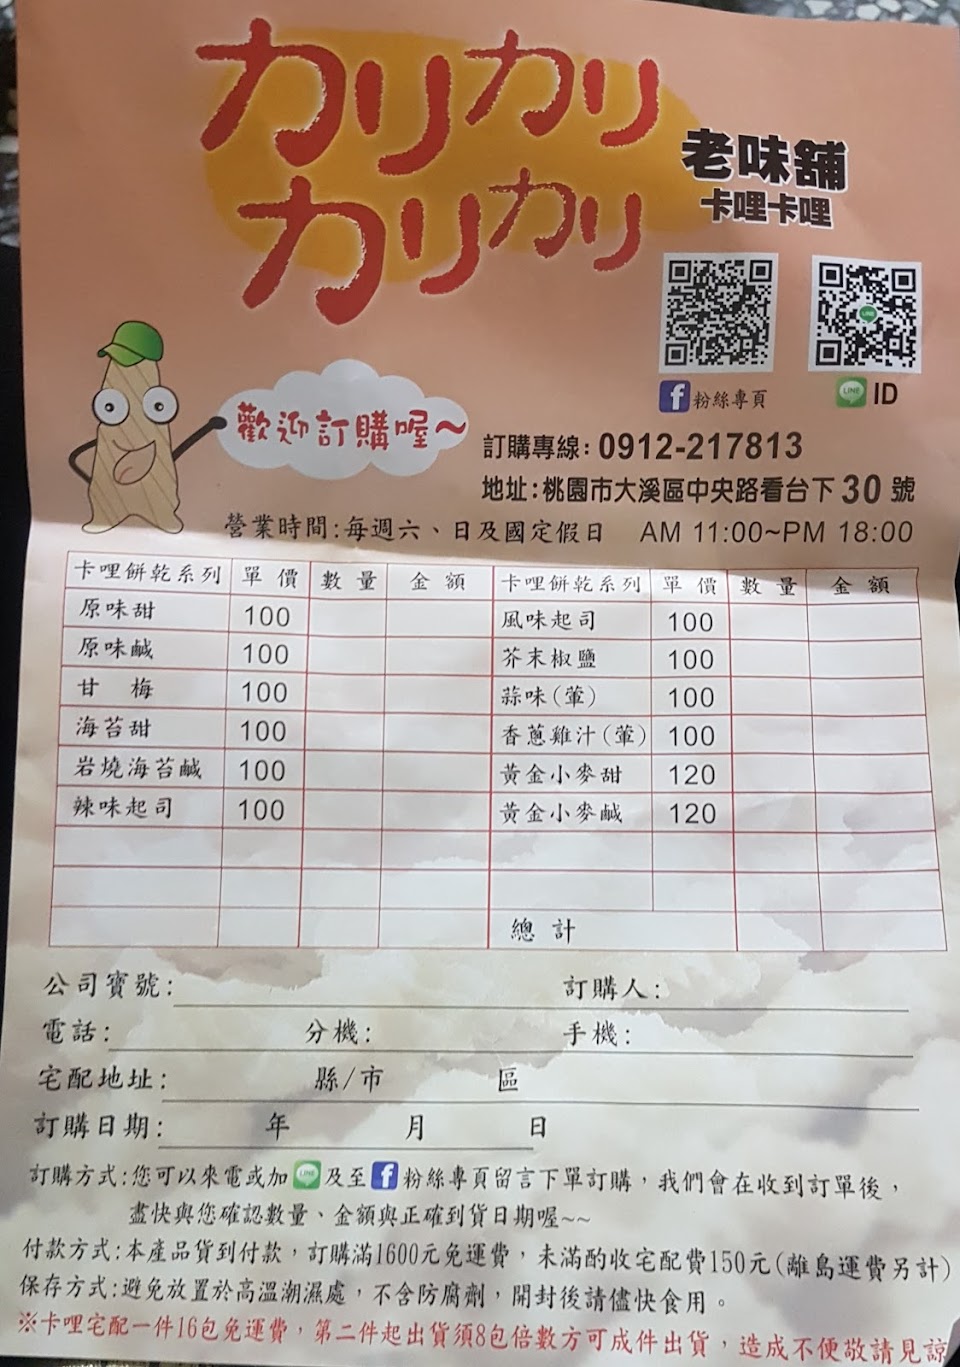 カリカリ
カリカリ
老味舖
卡哩卡哩
粉絲專頁
LINE ID
歡迎訂購喔~
訂購專線:0912-217813
地址:桃園市大溪區中央路看台下30號
營業時間:每週六、日及國定假日 AM 11:00~PM 18:00
卡哩餅乾系列 單價 數量 金額 卡哩餅乾系列 單價 數量 金額
原味甜 100 風味起司 100
原味鹹 100 芥末椒鹽 100
甘 梅 100 蒜味(葷) 100
海苔甜 100 香蔥雞汁(葷) 100
岩燒海苔鹹 100 黃金小麥甜 120
辣味起司 100 黃金小麥鹹 120
總計
公司寶號: 訂購人:
電話: 分機: 手機:
宅配地址: 縣/市 區
訂購日期: 年 月 日
訂購方式:您可以來電或加LINE及至f粉絲專頁留言下單訂購,我們會在收到訂單後,
盡快與您確認數量、金額與正確到貨日期喔~~
付款方式:本產品貨到付款,訂購滿1600元免運費,未滿酌收宅配費150元(離島運費另計)
保存方式:避免放置於高溫潮濕處,不含防腐劑,開封後請儘快食用。
※卡哩宅配一件16包免運費,第二件起出貨須8包倍數方可成件出貨,造成不便敬請見諒